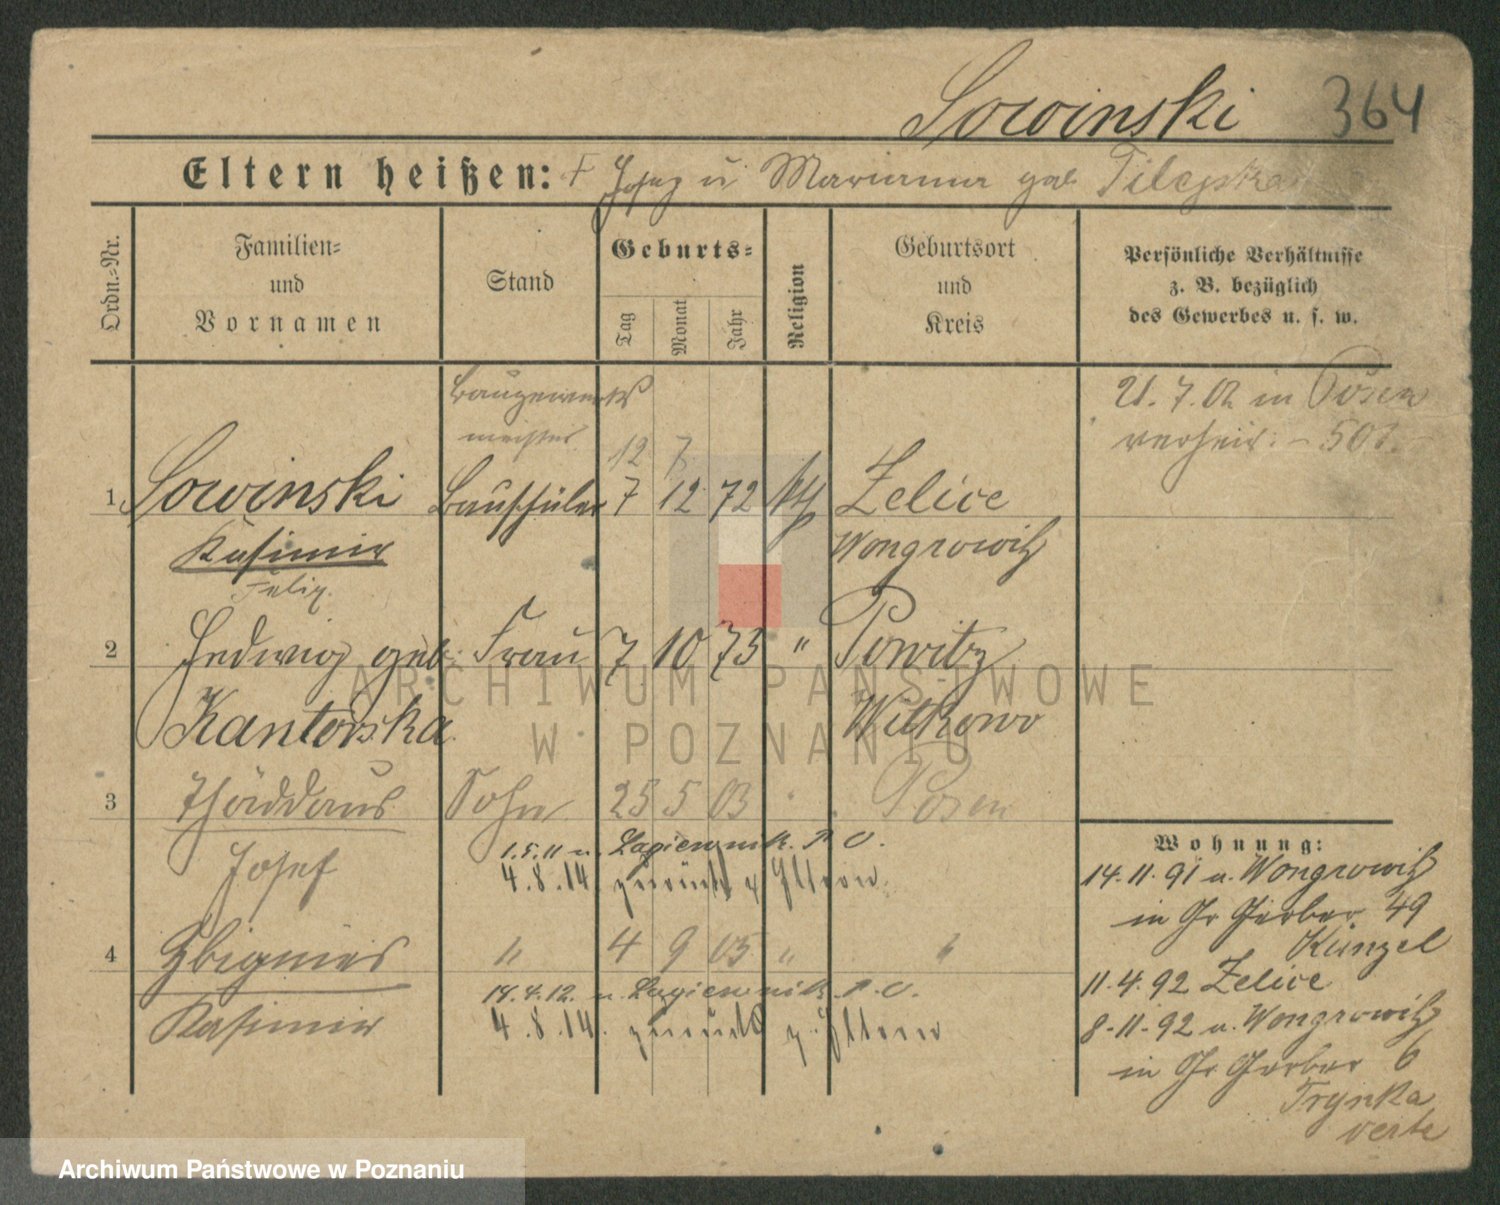 Sowinski 364
Eltern heißen: + Josef u Marianna geb.
Ordn.-Nr.
Familien-
und
Vornamen
Stand
Geburts-
Tag
Monat
Jahr
Religion
Geburtsort
und
Kreis
Persönliche Verhältnisse
z. B. bezüglich
des Gewerbes u. s. w.
Baugewerks
meister
12 7
21. 7. 02 in Posen
verheir:
1 Sowinski Bauschüler 7 12 72 kth Zelice
Kasimir Wongrowitz
Felix.
2 Hedwig geb. Frau 7 10 73 " Powitz
Kantorska Witkowo
3 Thäddäus Sohn 25 5 03 " Posen
Josef
1.5.11 n. Lagiewnik. P. O.
4.8.14. zurück z Eltern
4 Zbigniew " 4 9 05 " "
Kasimir
14.4.12. n. Lagiewnik. P. O.
4.8.14. zurück z. Eltern
Wohnung:
14. 11. 91 u. Wongrowitz
in Gr Gerber 49
Künzel
11. 4. 92 Zelice
8-11-92 u. Wongrowitz
in Gr Gerber 6
Trynka
verte
ARCHIWUM PAŃSTWOWE
W POZNANIU
Archiwum Państwowe w Poznaniu